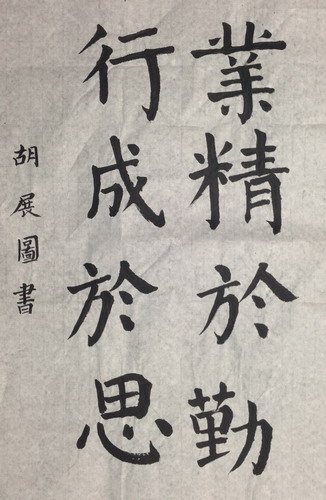 業精於勤
行成於思
胡展圖書